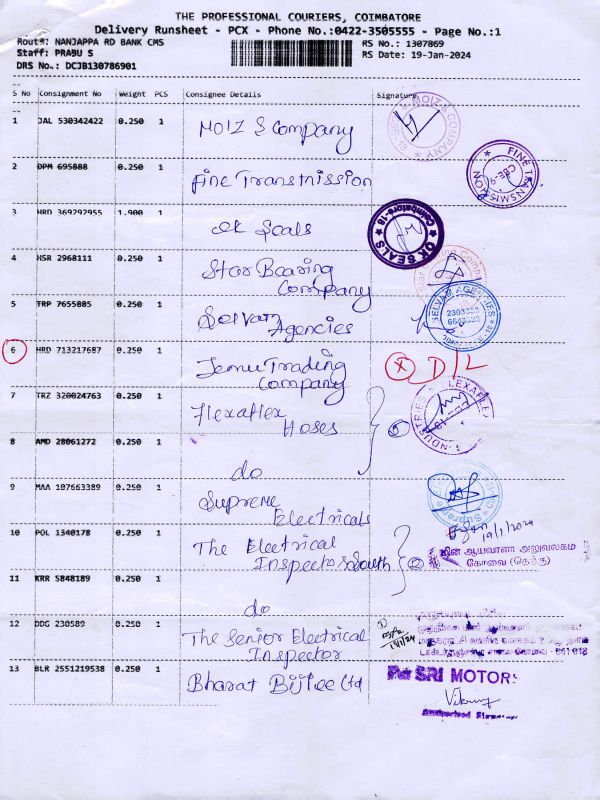 THE PROFESSIONAL COURIERS, COIMBATORE
Delivery Runsheet - PCX - Phone No.:0422-3505555 - Page No.:1
Route#: NANJAPPA RD BANK CMS
RS No.: 1307869
Staff: PRABU S
RS Date: 19-Jan-2024
DRS No.: DCJB130786901
S No Consignment No Weight PCS Consignee Details Signature
1 JAL 530342422 0.250 1 MOIZ & Company
MOIZ & COMPANY
2 DPM 695888 0.250 1 Fine Transmission
FINE TRANSMISSION
CBE-9
3 HRD 369292955 1.900 1 OK Seals
OK SEALS Coimbatore-18
4 HSR 2968111 0.250 1 Star Bearing
Company
5 TRP 7655885 0.250 1 Selvam
Agencies
SELVAM AGENCIES
6 HRD 713217687 0.250 1 Temu Trading
Company
X D/L
7 TRZ 320024763 0.250 1 Flexaflex
Hoses
2
FLEXAFLEX
8 AMD 28061272 0.250 1
do
9 MAA 107663389 0.250 1 Supreme
Electricals
10 POL 1340178 0.250 1 The Electrical
Inspector South
2
19/1/2024
மின் ஆய்வாளர் அலுவலகம்
கோவை (தெற்கு)
11 KRR 5848189 0.250 1
do
12 DDG 230589 0.250 1 The Senior Electrical
Inspector
13 BLR 2551219538 0.250 1 Bharat Bijlee Ltd
SRI MOTORS
Authorised